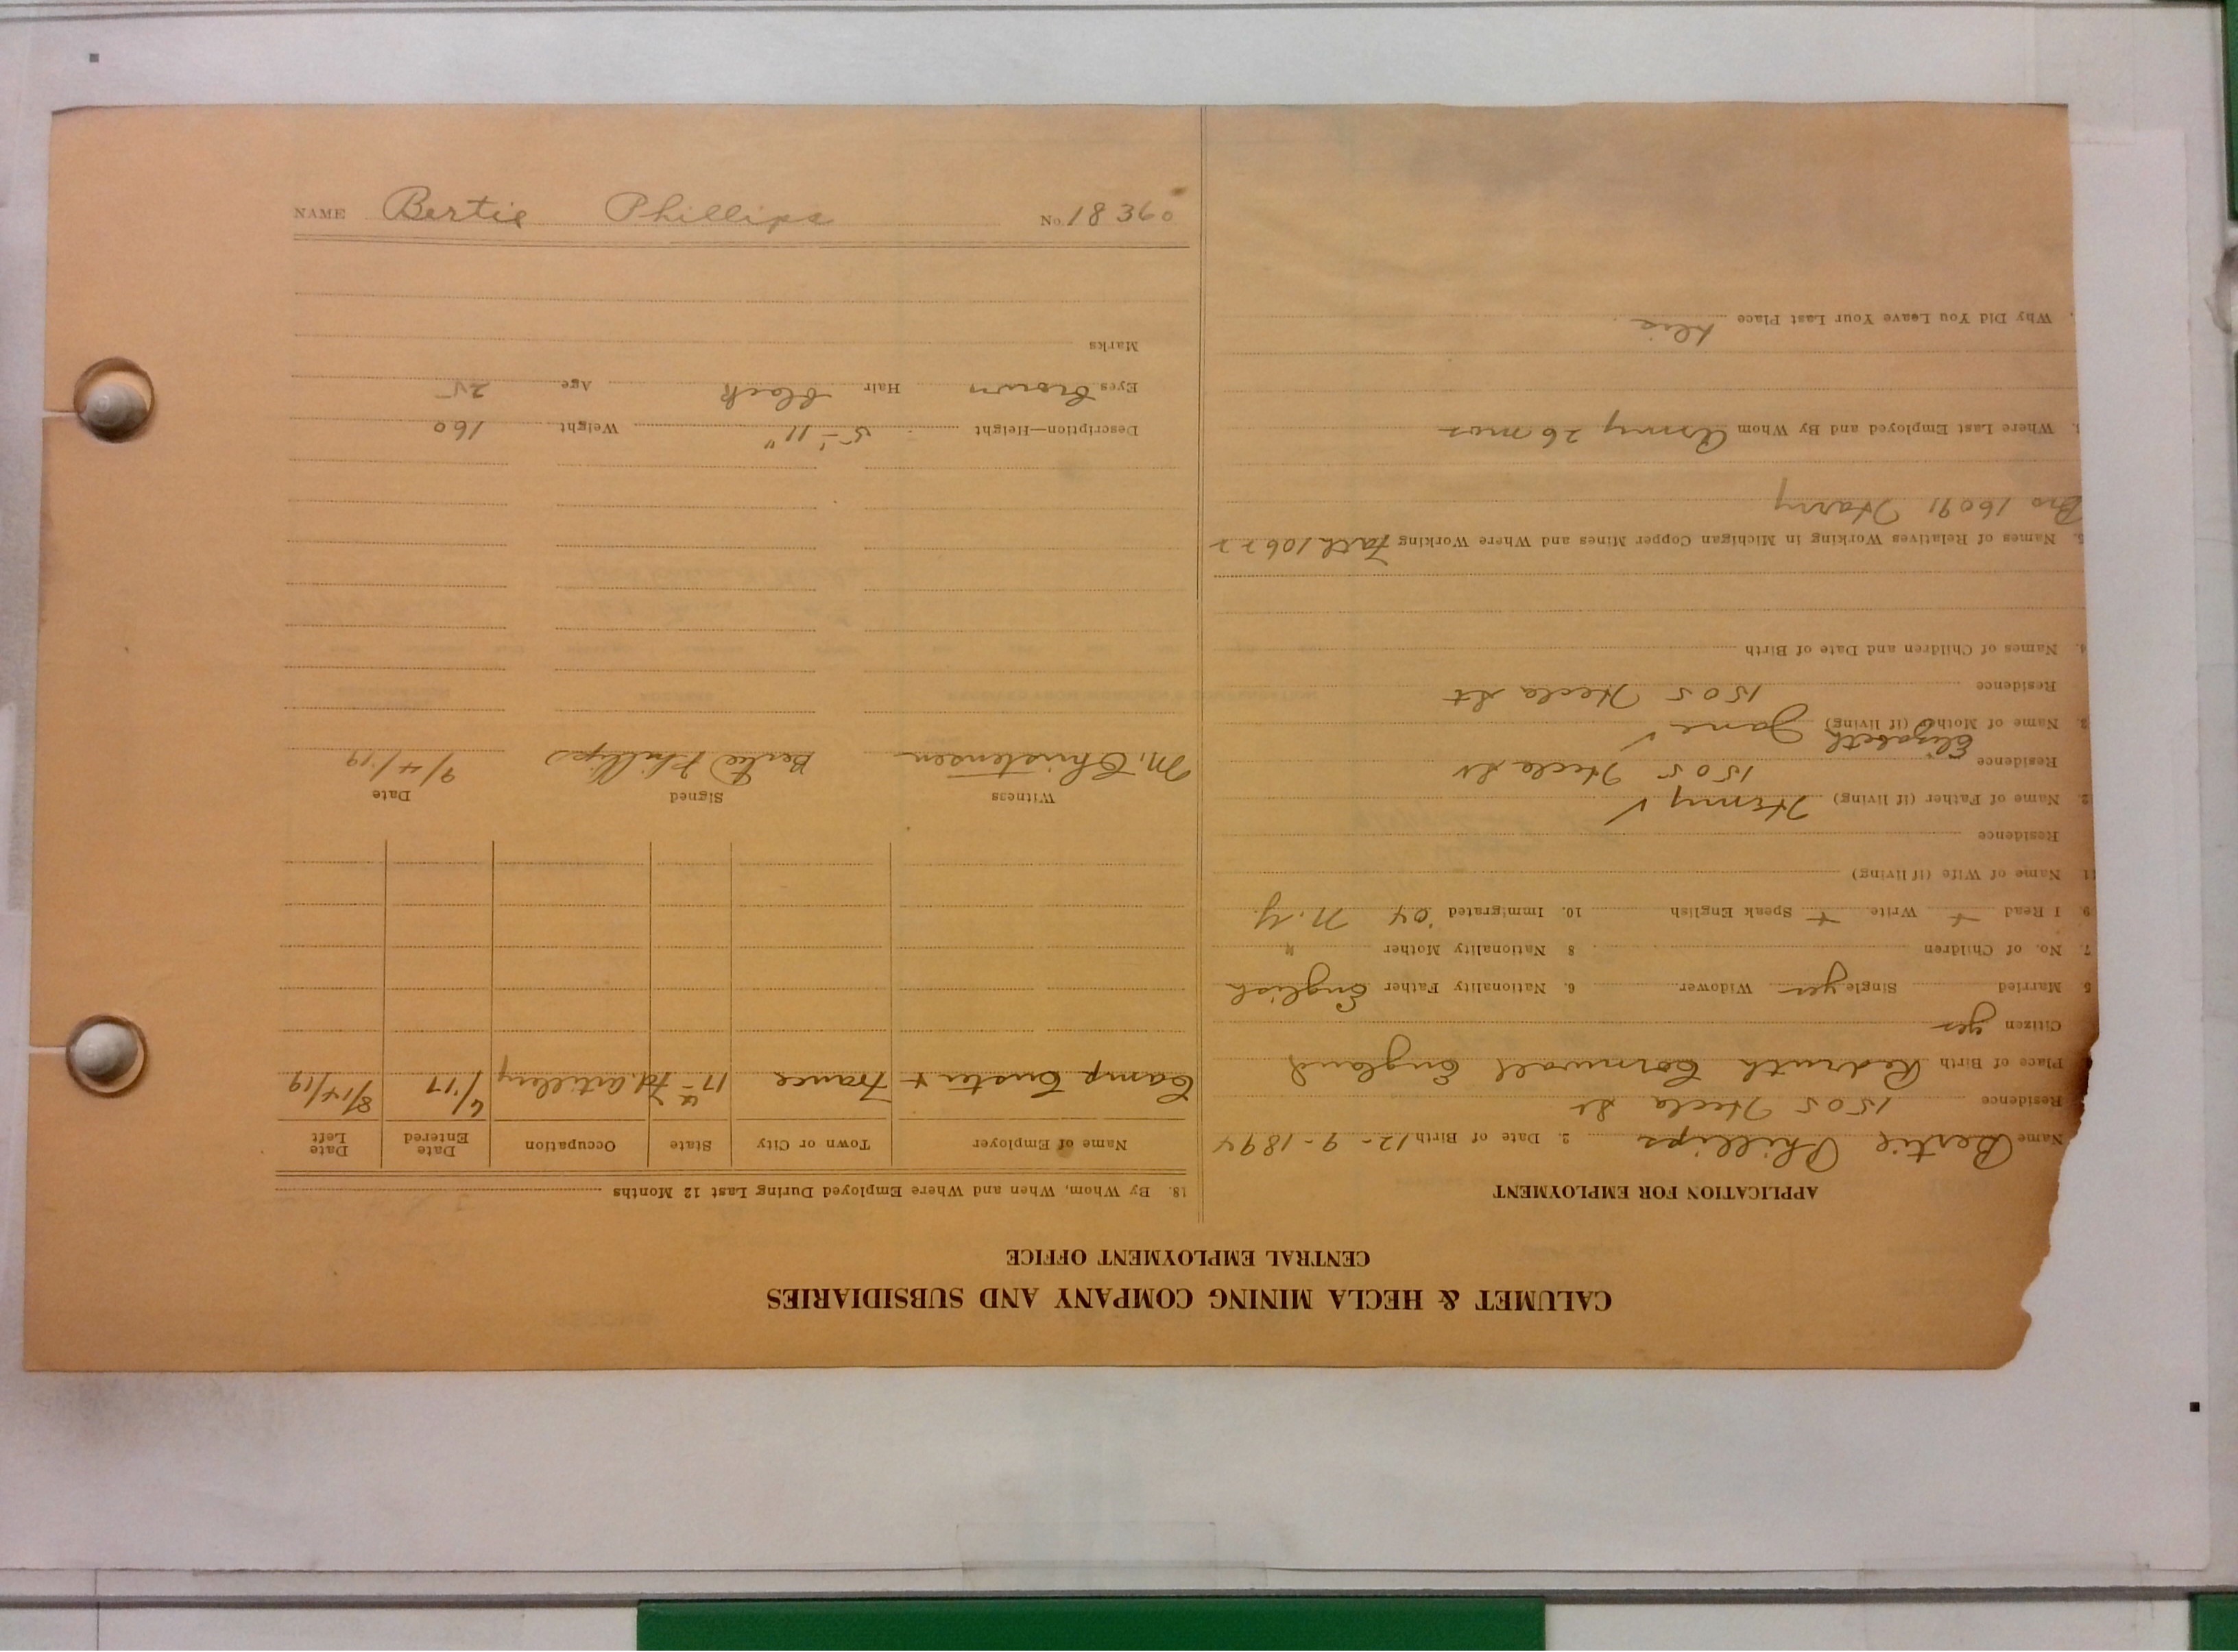 CALUMET & HECLA MINING COMPANY AND SUBSIDIARIES
CENTRAL EMPLOYMENT OFFICE
APPLICATION FOR EMPLOYMENT
Name Bertie Phillips 2. Date of Birth 12-9-1894
Residence 1505 Hecla St
Place of Birth Redruth Cornwall England
Citizen yes
5 Married Single yes Widower 6. Nationality Father English
7. No. of Children 8 Nationality Mother "
9. I Read + Write + Speak English 10. Immigrated '04 N.Y.
11. Name of Wife (if living)
Residence
2. Name of Father (if living) Henry ✓
Residence 1505 Hecla St
3. Name of Mother (if living) Elizabeth Jane ✓
Residence 1505 Hecla St
4. Names of Children and Date of Birth
5. Names of Relatives Working in Michigan Copper Mines and Where Working Fath 10622
Bro 16091 Harry
Where Last Employed and By Whom Army 26 mos
Why Did You Leave Your Last Place dis
18. By Whom, When and Where Employed During Last 12 Months
Name of Employer Town or City State Occupation Date Entered Date Left
Camp Custer + France 17th Fd. artillery 6/17 8/14/19
Witness Signed Date
M. Christensen Bertie Phillips 9/4/19
Description—Height 5' 11" Weight 160
Eyes brown Hair black Age 25
Marks
NAME Bertie Phillips No. 18360